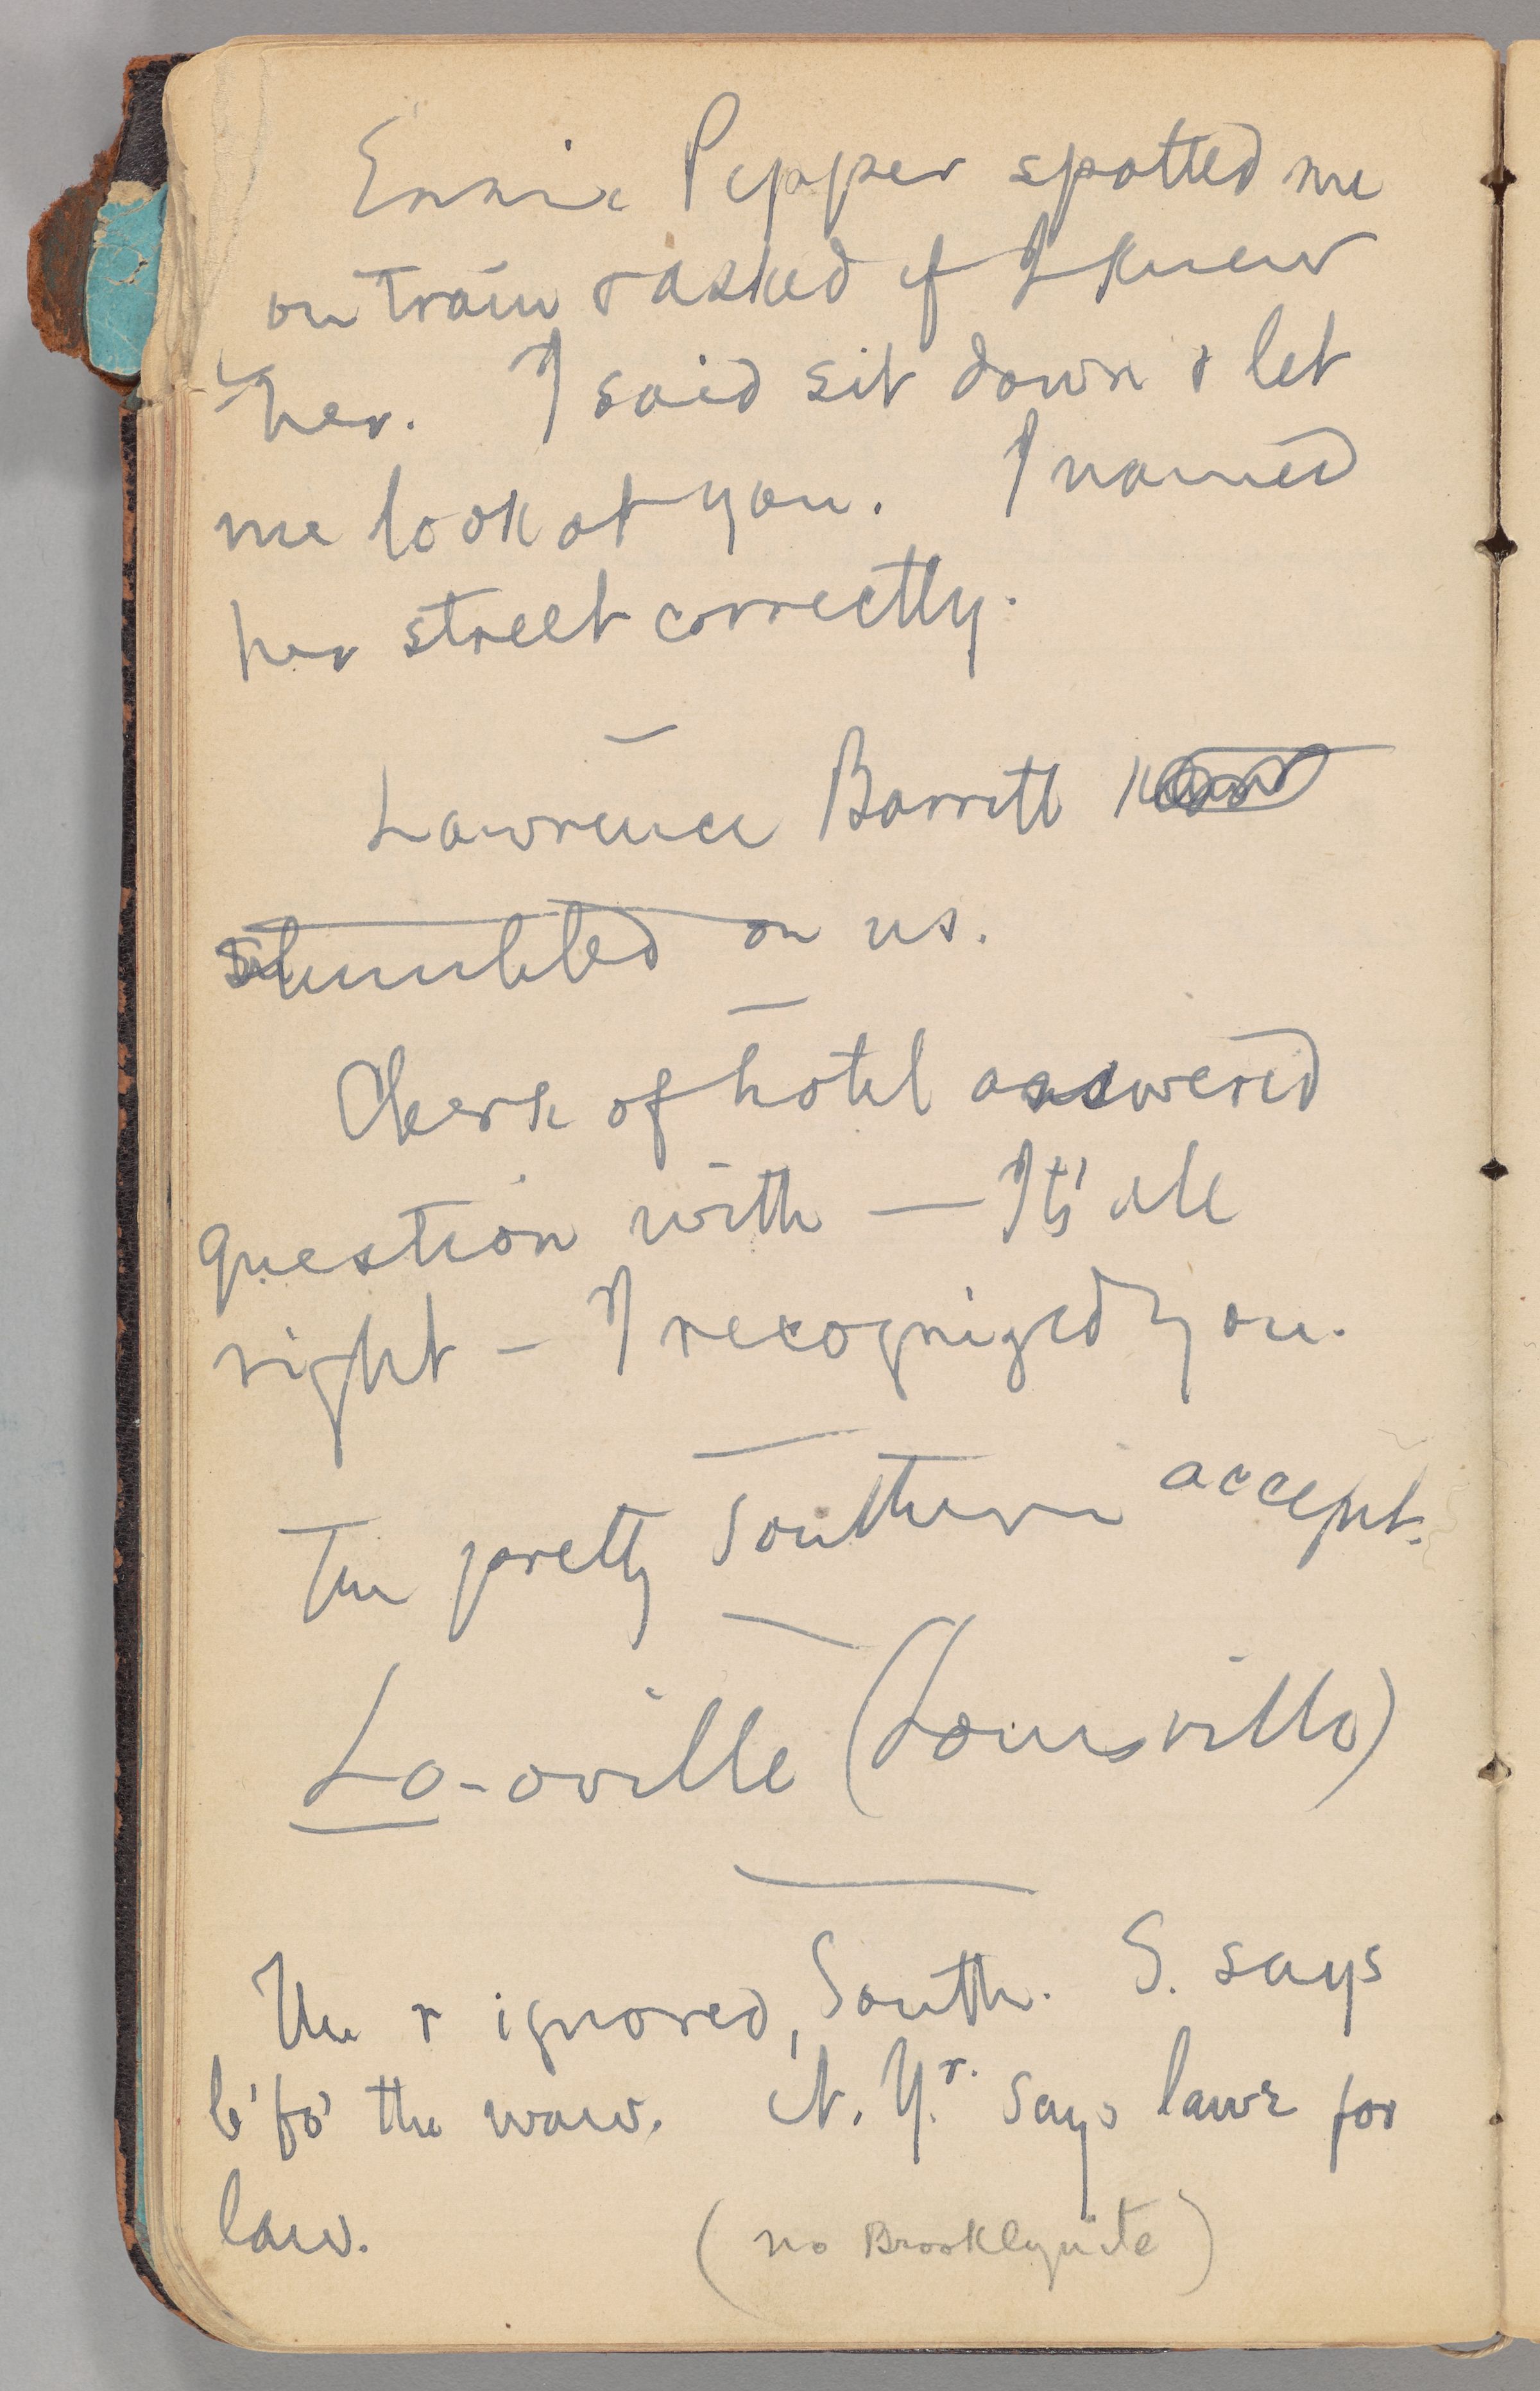 Ennie Pepper spotted me
on train & asked if I knew
her. I said sit down & let
me look at you. I named
her street correctly.
Lawrence Barrett
stumbled on us.
Clerk of hotel answered
question with — It's all
right – I recognized you.
The pretty Southern accept.
Lo-oville (Louisville)
The r ignored, South. S. says
b'fo' the waw. N. Y.r. says lawr for
law. (no Brooklynite)